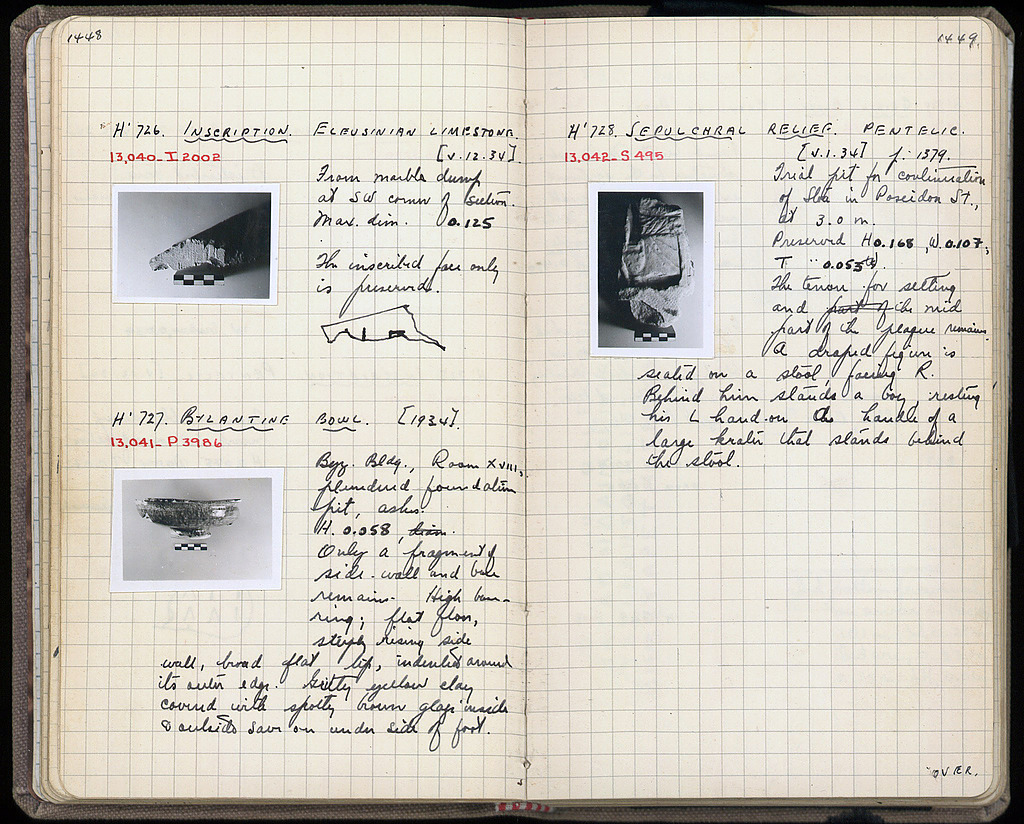 1448
H' 726. INSCRIPTION. ELEUSINIAN LIMESTONE.
13,040_I 2002
[V.12.34].
From marble dump
at SW corner of section.
Max. dim. 0.125
The inscribed face only
is preserved.
H' 727. BYZANTINE BOWL. [1934].
13,041_P 3986
Byz. Bldg., Room XVIII,
plundered foundation
pit, ashes.
H. 0.058, diam.
Only a fragment of
side-wall and base
remains. High base-
ring; flat floor,
steeply rising side
wall, broad flat lip, indented around
its outer edge. Gritty yellow clay
covered with spotty brown glaze inside
& outside save on under side of foot.
1449.
H' 728. SEPULCHRAL RELIEF. PENTELIC.
13,042_S 495
[V.1.34] f: 1379.
Trial pit for continuation
of Stoa in Poseidon St.,
at 3.0 m.
Preserved H 0.168, W. 0.107,
T. " 0.053
The tenon for setting
and part of the mid
part of the plaque remains.
A draped figure is
seated on a stool, facing R.
Behind him stands a boy, resting
his L hand on the handle of a
large krater that stands behind
the stool.
OVER.